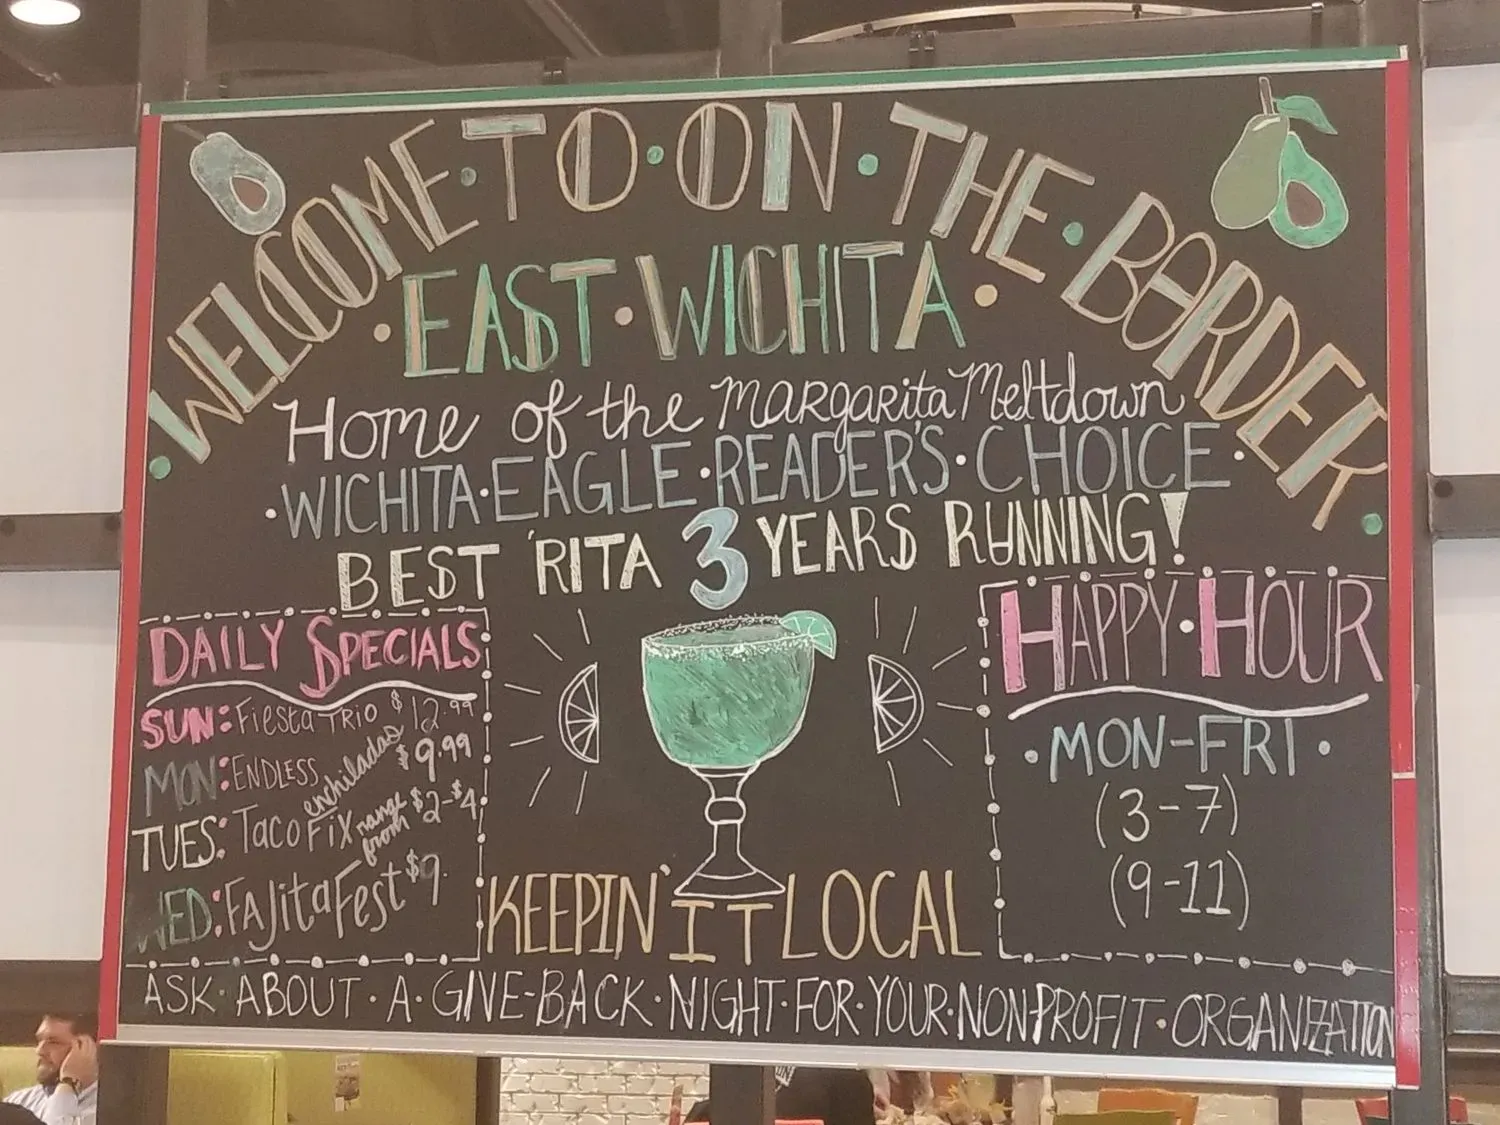 WELCOME · TO · ON · THE · BORDER
· EAST · WICHITA ·
Home of the Margarita Meltdown
· WICHITA · EAGLE · READER'S · CHOICE ·
BEST 'RITA 3 YEARS RUNNING!
DAILY SPECIALS
SUN: Fiesta TRIO $12.99
MON: ENDLESS enchiladas $9.99
TUES: Taco FiX range from $2-$4
WED: FAJitaFest $9.
HAPPY · HOUR
· MON-FRI ·
(3-7)
(9-11)
KEEPIN' IT LOCAL
ASK · ABOUT · A · GIVE-BACK · NIGHT · FOR · YOUR · NON-PROFIT · ORGANIZATION